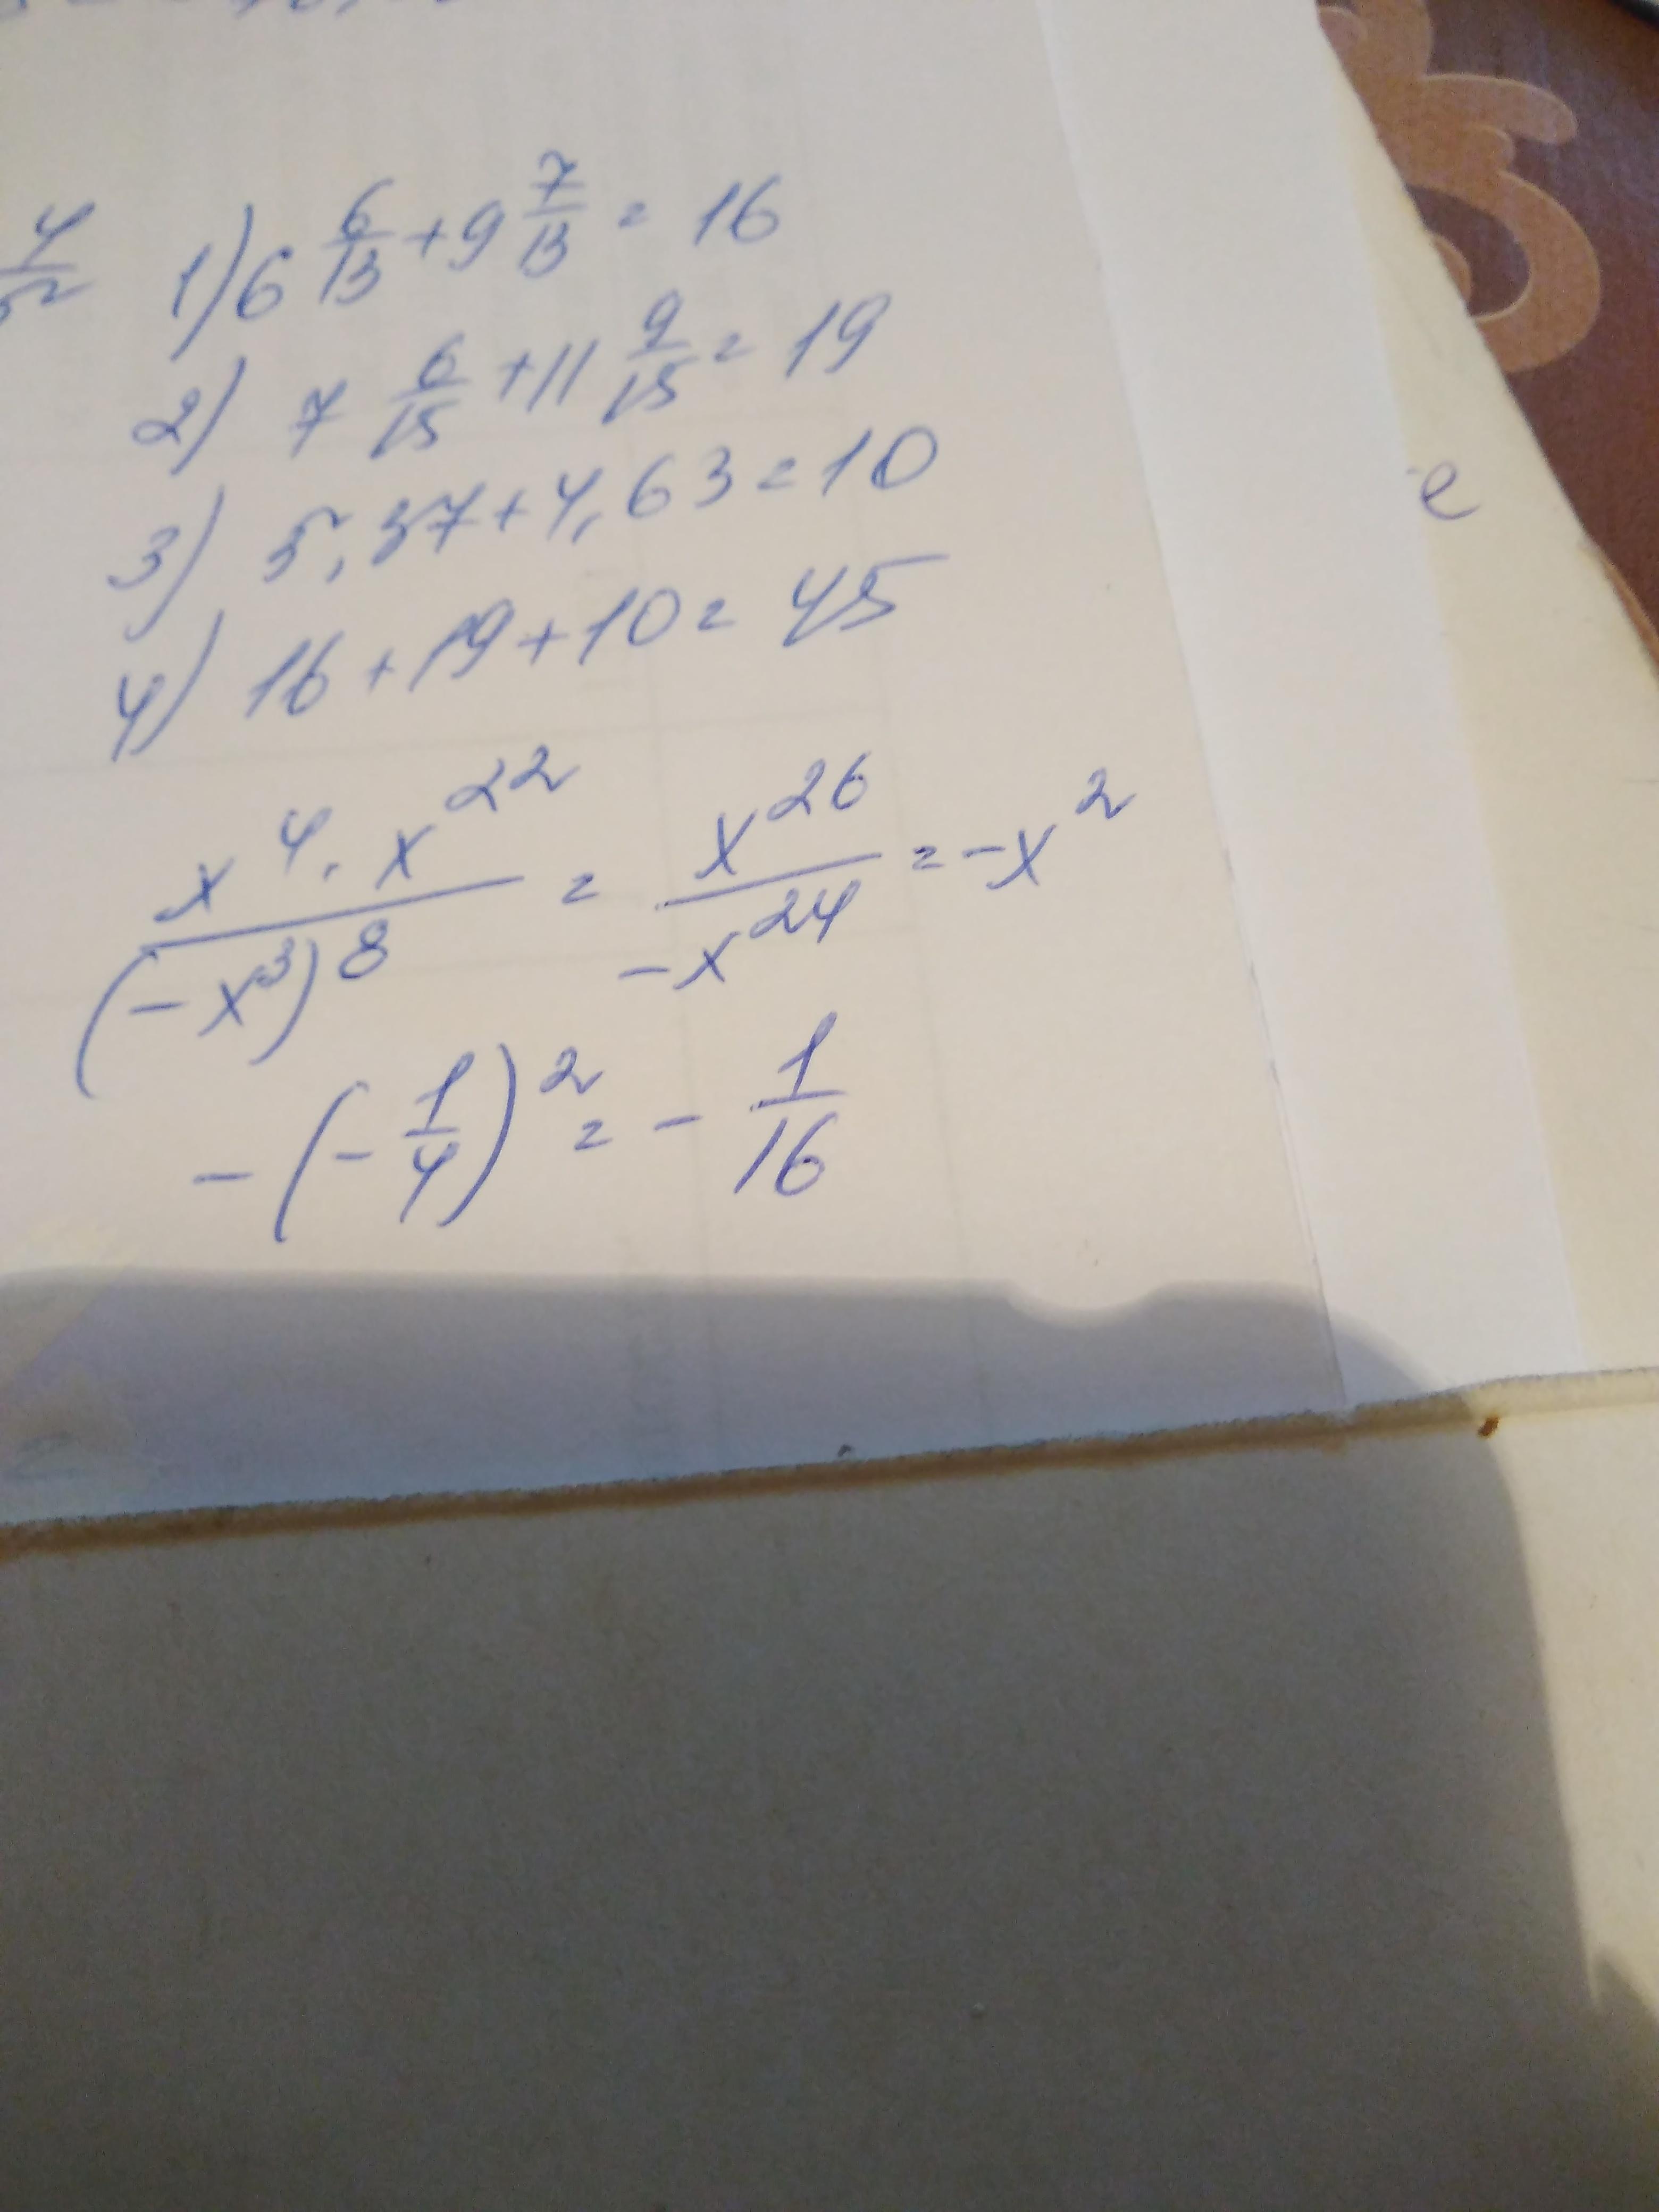 4/5 1) 6 6/13 + 9 7/13 = 16
2) 7 6/15 + 11 9/15 = 19
3) 5,37 + 4,63 = 10
4) 16 + 19 + 10 = 45
(x^4 · x^22)/(-x^3)^8 = x^26/-x^24 = -x^2
-(-1/4)^2 = -1/16
e